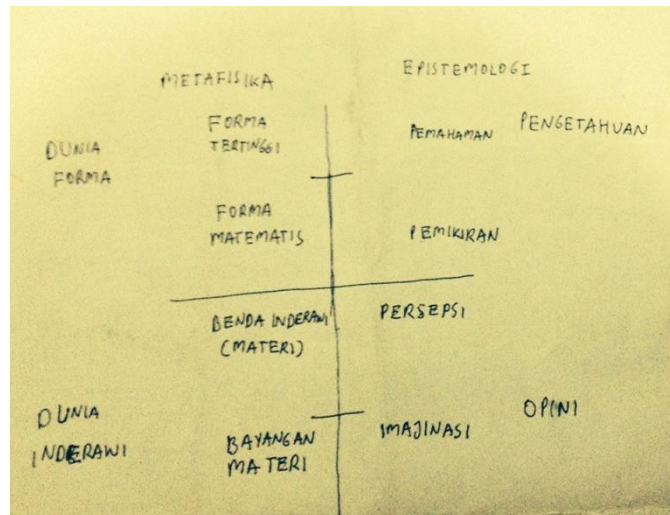 METAFISIKA
EPISTEMOLOGI
DUNIA
FORMA
FORMA
TERTINGGI
PEMAHAMAN
PENGETAHUAN
FORMA
MATEMATIS
PEMIKIRAN
BENDA INDERAWI
(MATERI)
PERSEPSI
DUNIA
INDERAWI
BAYANGAN
MATERI
IMAJINASI
OPINI